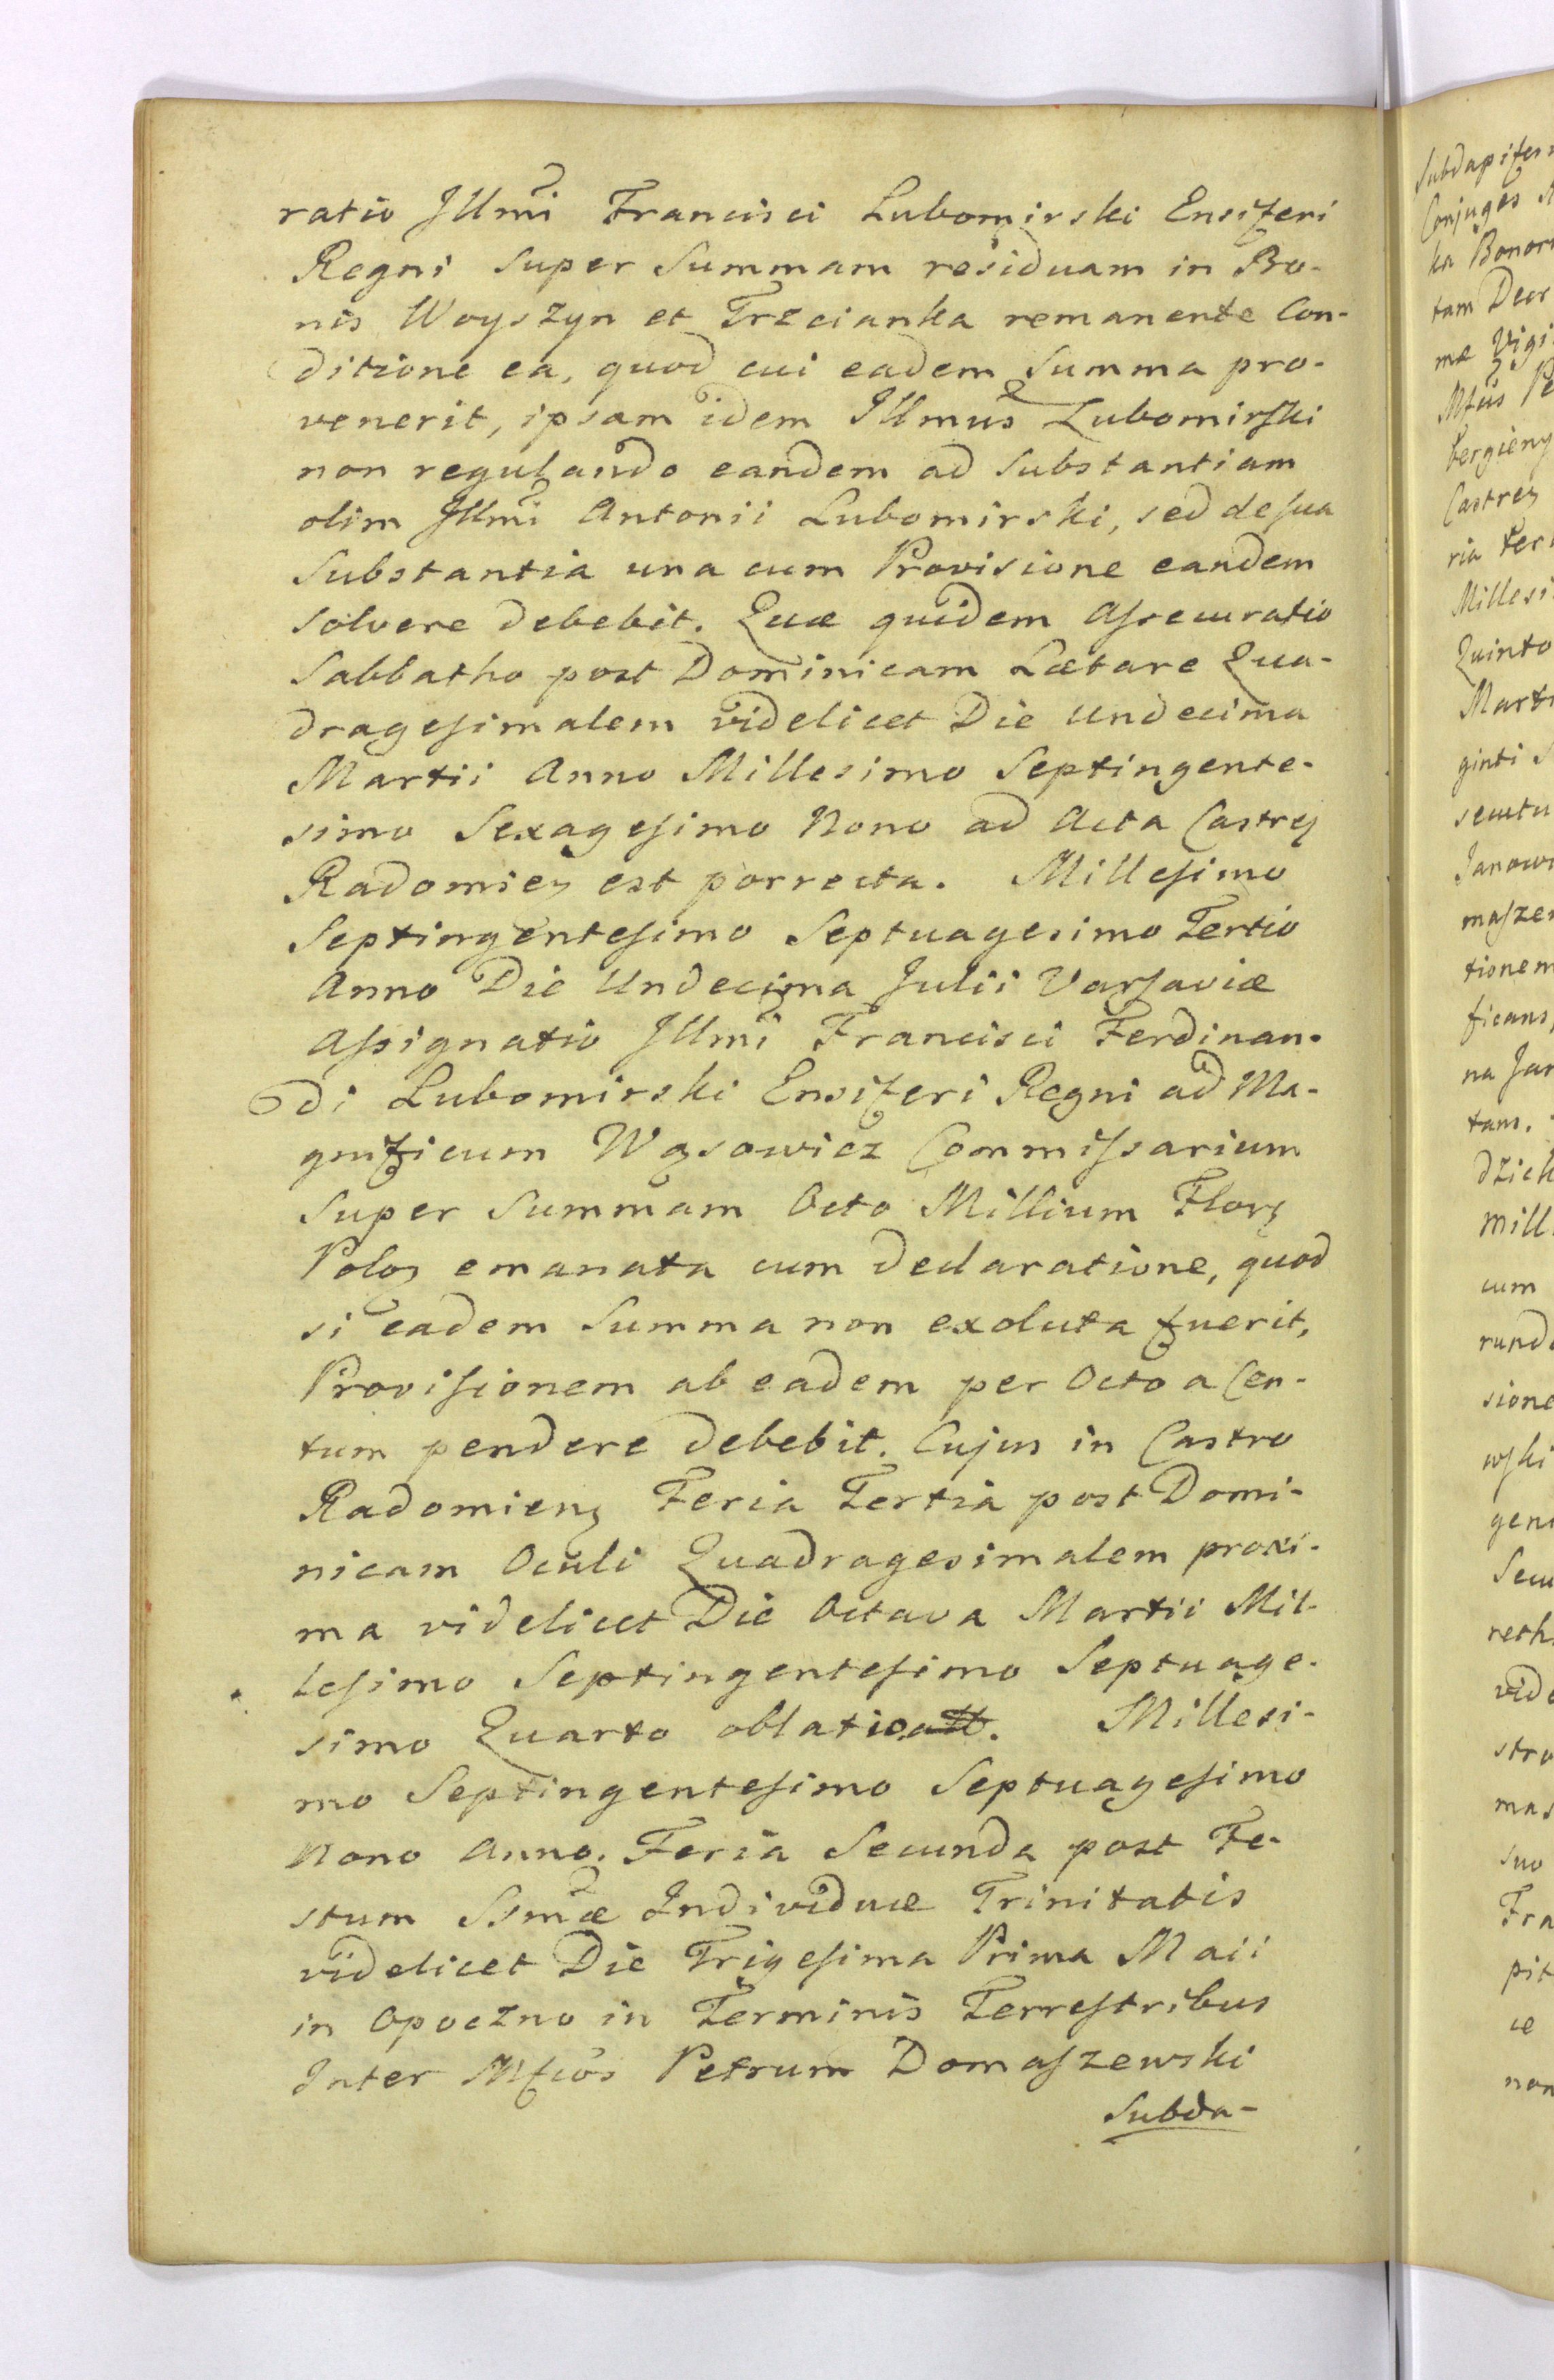 ratio Jllmi Francisci Lubomirski Ensiferi
Regni super Summam residuam in Bo-
nis Woyszyn et Trzcianka remanente Con-
ditione ea, quod cui eadem Summa pro-
venerit, ipsam idem Jllmus Lubomirſki
non regulando eandem ad Substantiam
olim Jllmi Antonii Lubomirski, sed de ſua
Substantia una cum Provisione eandem
solvere debebit. Quæ quidem Aſsecuratio
Sabbatho post Dominicam Lætare Qua-
drageſimalem videlicet Die Undecima
Martii Anno Millesimo Septingente-
simo Sexageſimo Nono ad Acta Castrȝ
Radomienȝ est porrecta. Milleſimo
Septingenteſimo Septuagesimo Tertio
Anno Die Undecima Julii Varſaviæ
Aſsignatio Jllmi Francisci Ferdinan-
di Lubomirski Ensiferi Regni ad Ma-
gnificum Wąsowicz Commiſsarium
super Summam Octo Millium Florȝ
Polȝ emanata cum declaratione, quod
si eadem Summa non exoluta fuerit,
Proviſionem ab eadem per Octo a Cen-
tum pendere debebit. Cujus in Castro
Radomienȝ Feria Tertia post Domi-
nicam Oculi Quadragesimalem proxi-
ma videlicet Die Octava Martii Mil-
leſimo Septingenteſimo Septuage-
simo Quarto oblatio. Millesi-
mo Septingenteſimo Septuageſimo
Nono Anno. Feria Secunda post Fe-
stum Ssmæ Individuæ Trinitatis
videlicet Die Trigeſima Prima Maii
in Opoczno in Terminis Terreſtribus
Inter Mfcos Petrum Domaſzewski
Subda-